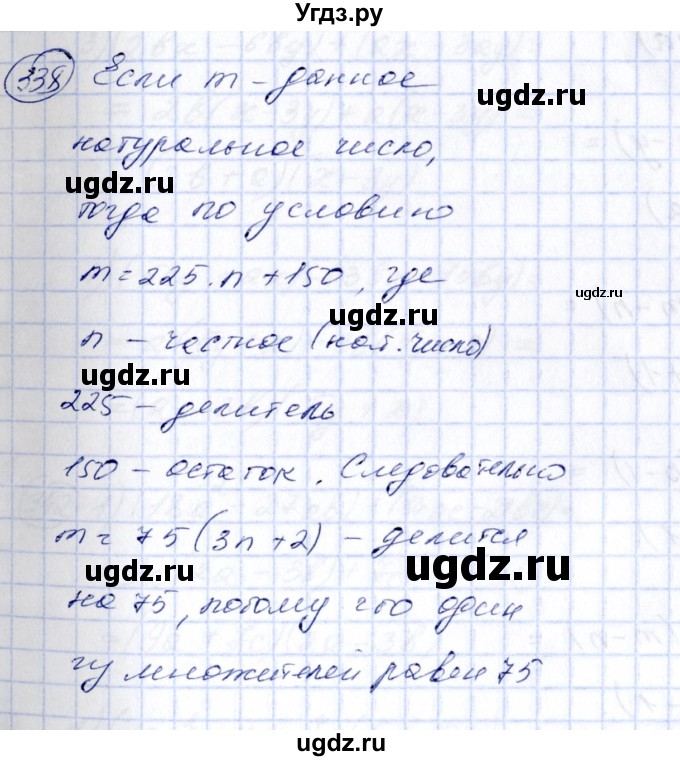 Угдз.ру
338 Если m - данное
ugdz.ru
натуральное число,
ugdz.ru
тогда по условию
m = 225 · n + 150, где
ugdz.ru
n - частное (нат. число)
ugdz.ru
225 - делитель
150 - остаток. Следовательно
m = 75 (3n + 2) - делится
ugdz.ru ugdz.ru
на 75, потому что один
из множителей равен 75
ugdz.ru